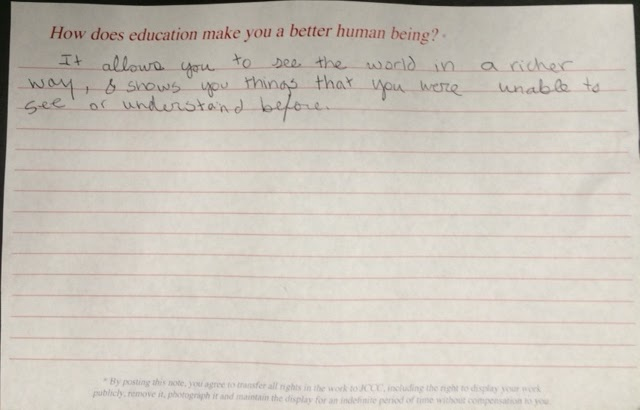 How does education make you a better human being? *
It allows you to see the world in a richer
way, & shows you things that you were unable to
see or understand before.
* By posting this note, you agree to transfer all rights in the work to JCCC, including the right to display your work
publicly, remove it, photograph it and maintain the display for an indefinite period of time without compensation to you